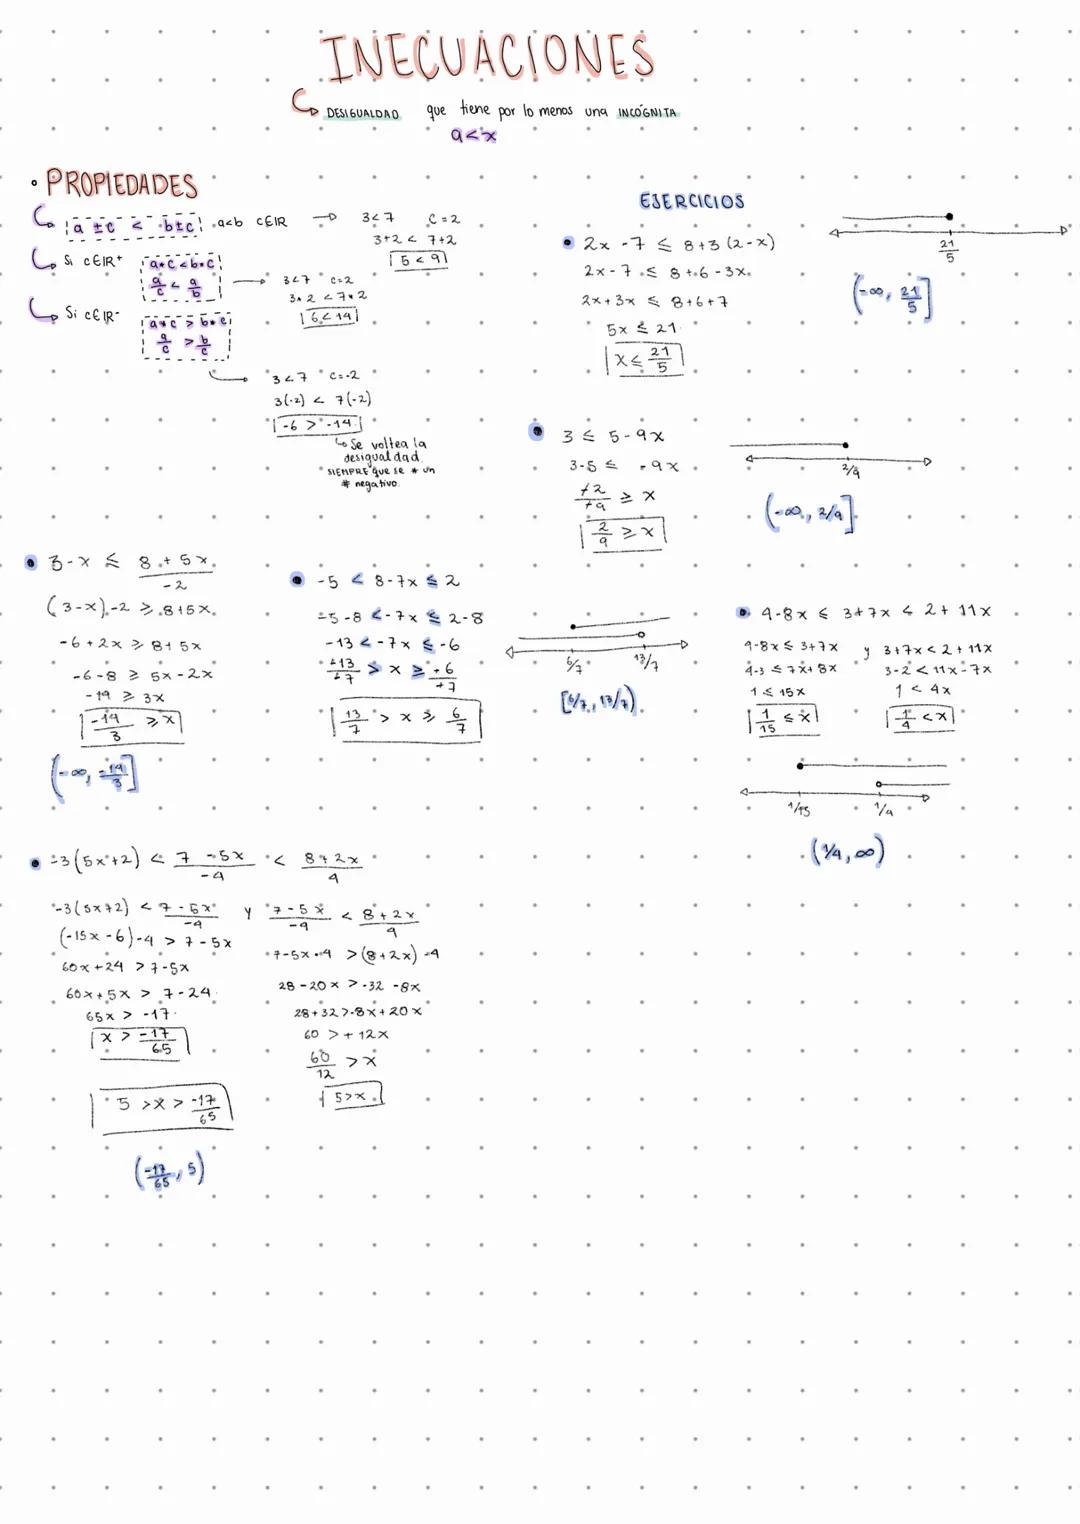 INECUACIONES
DESIGUALDAD que tiene por lo menos una INCÓGNITA
a<x
• PROPIEDADES
a ±c < b±c a<b c∈IR → 3<7 c=2
3+2 < 7+2
5 < 9
Si c∈IR+ a*c<b*c
a/c < a/b
3<7 c=2
3*2 <7*2
6<14
Si c∈IR- a*c > b*c
a/c > b/c
3<7 c=-2
3(-2) < 7(-2)
-6 > -14
Se voltea la
desigualdad
SIEMPRE que se * un
# negativo.
EJERCICIOS
• 2x -7 ≤ 8+3(2-x)
2x-7 ≤ 8+6-3x
2x+3x ≤ 8+6+7
5x ≤ 21
x≤ 21/5
21/5
(-∞, 21/5]
• 3 ≤ 5-9x
3-5 ≤ -9x
+2/+9 ≥ x
2/9 ≥ x
2/9
(-∞, 2/9]
• 3-x ≤ 8+5x/-2
(3-x)-2 ≥ 8+5x
-6+2x ≥ 8+5x
-6-8 ≥ 5x-2x
-14 ≥ 3x
-14/3 ≥x
(-∞, -14/3]
• -5 < 8-7x ≤ 2
-5-8 <-7x ≤ 2-8
-13 <-7x ≤ -6
+13/+7 > x ≥ +6/+7
13/7 > x ≥ 6/7
6/7 13/7
[6/7, 13/7)
• 4-8x ≤ 3+7x < 2+11x
4-8x ≤ 3+7x y 3+7x<2+11x
4-3 ≤ 7x+8x 3-2<11x-7x
1 ≤ 15x 1 < 4x
1/15 ≤x 1/4 <x
1/15 1/4
(1/4, ∞)
• -3(5x+2) < 7-5x/-4 < 8+2x/4
-3(5x+2) < 7-5x/-4 y 7-5x/-4 < 8+2x/4
(-15x-6)-4 > 7-5x 7-5x•4 >(8+2x)-4
60x+24 >7-5x 28-20x >-32 -8x
60x+5x > 7-24 28+32>-8x+20x
65x > -17 60 >+12x
x > -17/65 60/12 >x
5>x
5 >x > -17/65
(-17/65, 5)